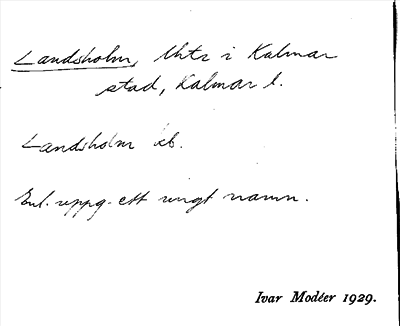 Landsholm, Uhtr i Kalmar
stad, Kalmar l.
Landsholm ib.
Enl. uppg. ett ungt namn.
Ivar Modéer 1929.